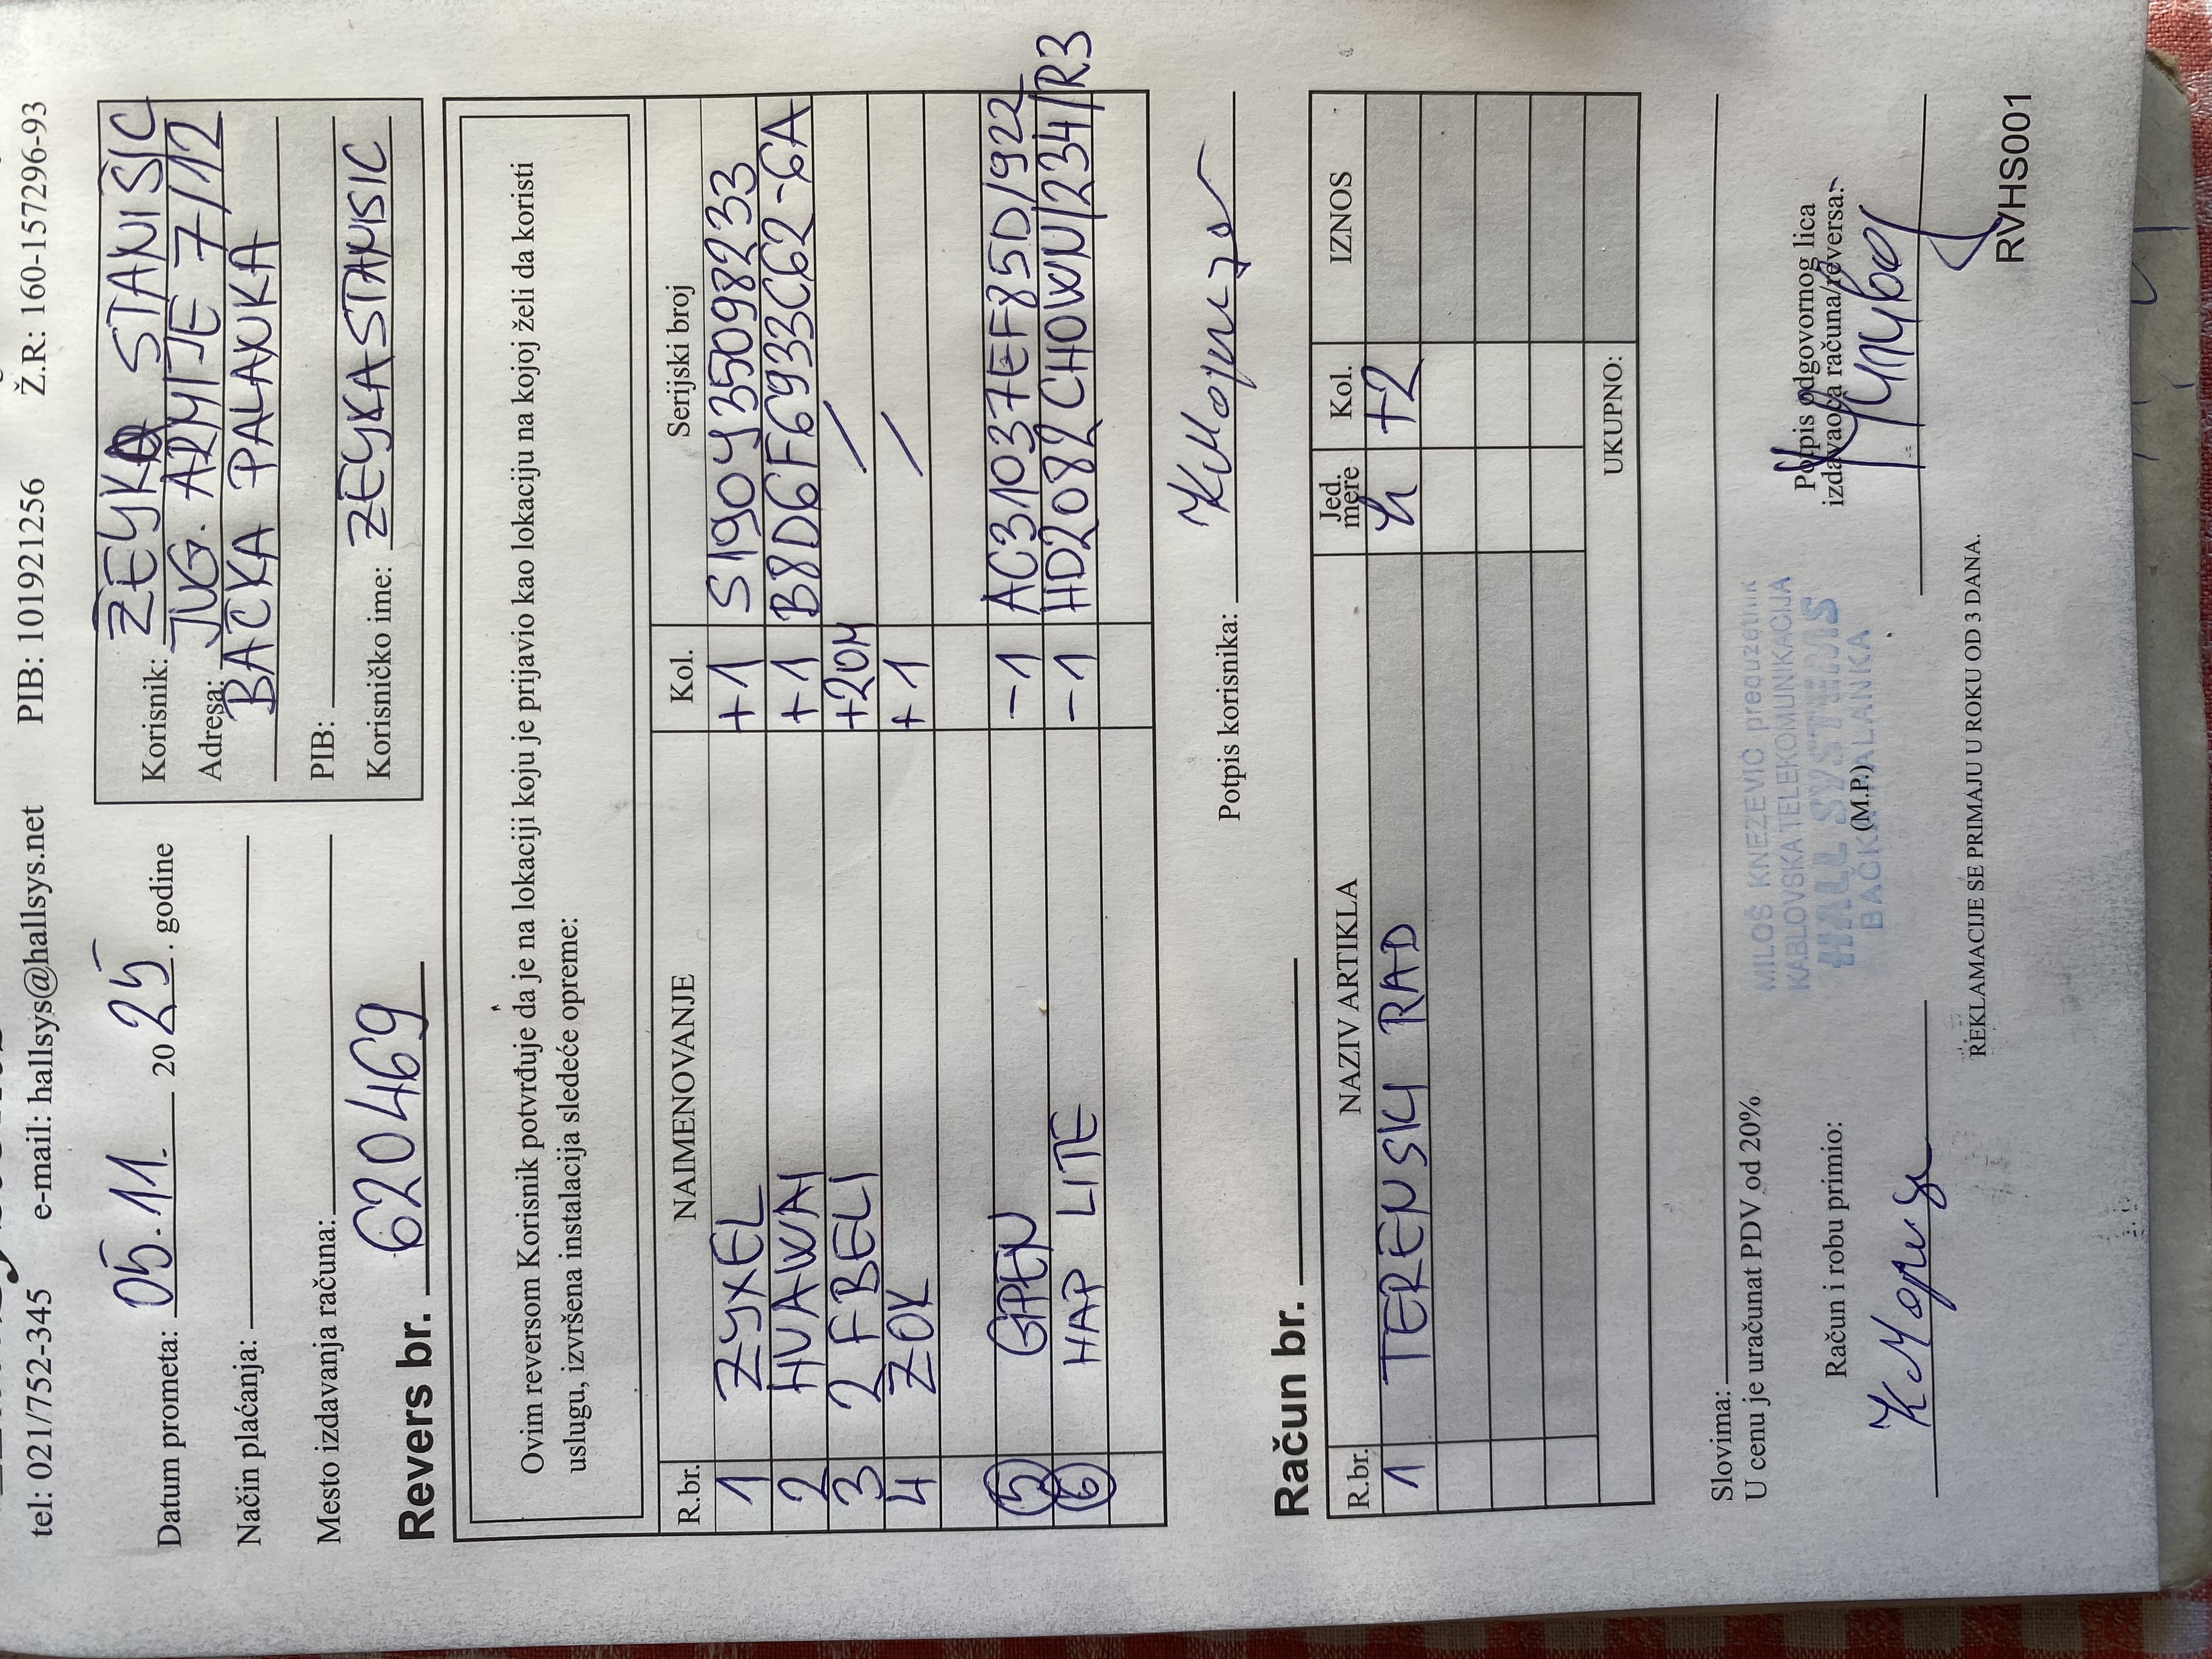 tel: 021/752-345 e-mail: hallsys@hallsys.net PIB: 101921256 Ž.R: 160-157296-93
Datum prometa: 05.11. 2025. godine
Način plaćanja:
Mesto izdavanja računa:
Korisnik: ZELJKO STANIŠIĆ
Adresa: JUG. ARMIJE 7/12
BACKA PALANKA
PIB:
Korisničko ime: ZELJKASTANISIC
Revers br. 620469
Ovim reversom Korisnik potvrđuje da je na lokaciji koju je prijavio kao lokaciju na kojoj želi da koristi
uslugu, izvršena instalacija sledeće opreme:
R.br. NAIMENOVANJE Kol. Serijski broj
1 ZYXEL +1 S190Y35098233
2 HUAWAI +1 B8D6F6933C62-6A
3 2 FBELI +20M /
4 ZOK +1 /
5 GPEN -1 AC31037EF85D/922
6 HAP LITE -1 HD2082CHOWN/234/R3
Potpis korisnika:
Račun br.
R.br. NAZIV ARTIKLA Jed. mere Kol. IZNOS
1 TERENSKI RAD h +2
UKUPNO:
Slovima:
U cenu je uračunat PDV od 20%
Račun i robu primio:
(M.P.)
Potpis odgovornog lica
izdavaoca računa/reversa:
MILOŠ KNEZEVIĆ preduzetnik
KABLOVSKA TELEKOMUNIKACIJA
HALL SYSTEMS
BAČKA PALANKA
REKLAMACIJE SE PRIMAJU U ROKU OD 3 DANA.
RVHS001